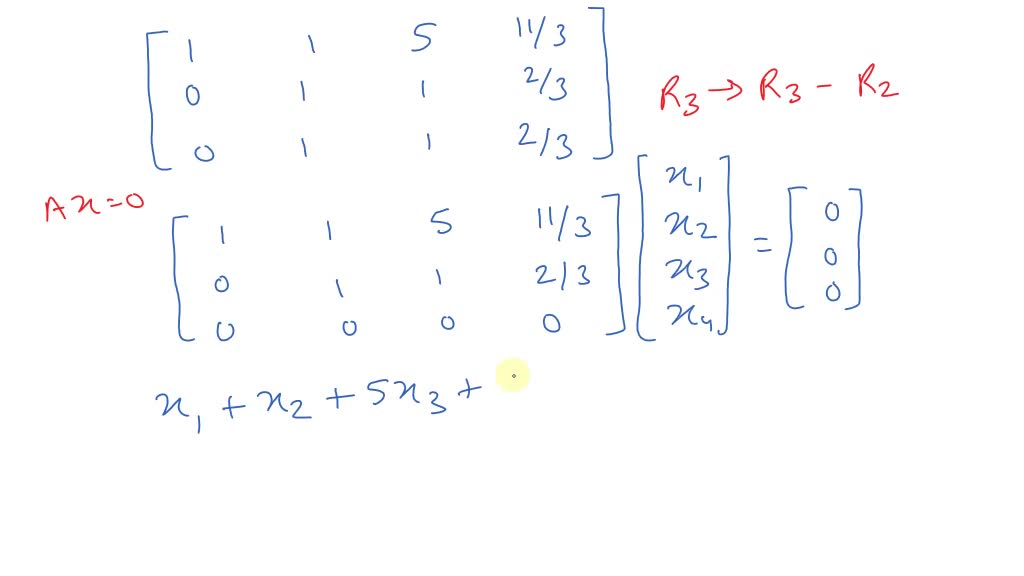 1 1 5 11/3
0 1 1 2/3
0 1 1 2/3
R3 → R3 - R2
Ax=0
1 1 5 11/3
0 1 1 2/3
0 0 0 0
x1
x2
x3
x4
=
0
0
0
x1 + x2 + 5x3 +